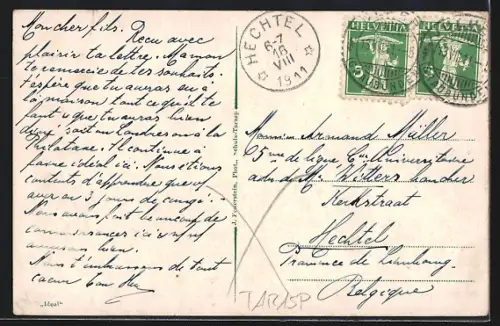 Mon cher fils. Recu avec
plaisir ta lettre. Maman
te remercie de tes souhaits.
J'espère que tu auras eu à
la maison tout ce qu'il te
faut et que tu auras bien
soit à Londres ou à la
Il continue à
faire idéal ici. Nous étions
contents d'apprendre que
auras 3 jours de congé.
Nous avons fait beaucoup de
connaissances ici
bien.
Nous t'embrassons de tout
coeur ton
„Ideal"
J. Feuerstein, Phot., Schuls-Tarasp
HECHTEL
6-7
16
VIII
1911
HELVETIA
5
HELVETIA
5
Monsieur Armand Müller
5 rue de ligne Cie Universitaire
adr. de Mr. Witters
Kerkstraat
Hechtel
Province de Limbourg
Belgique
TARASP